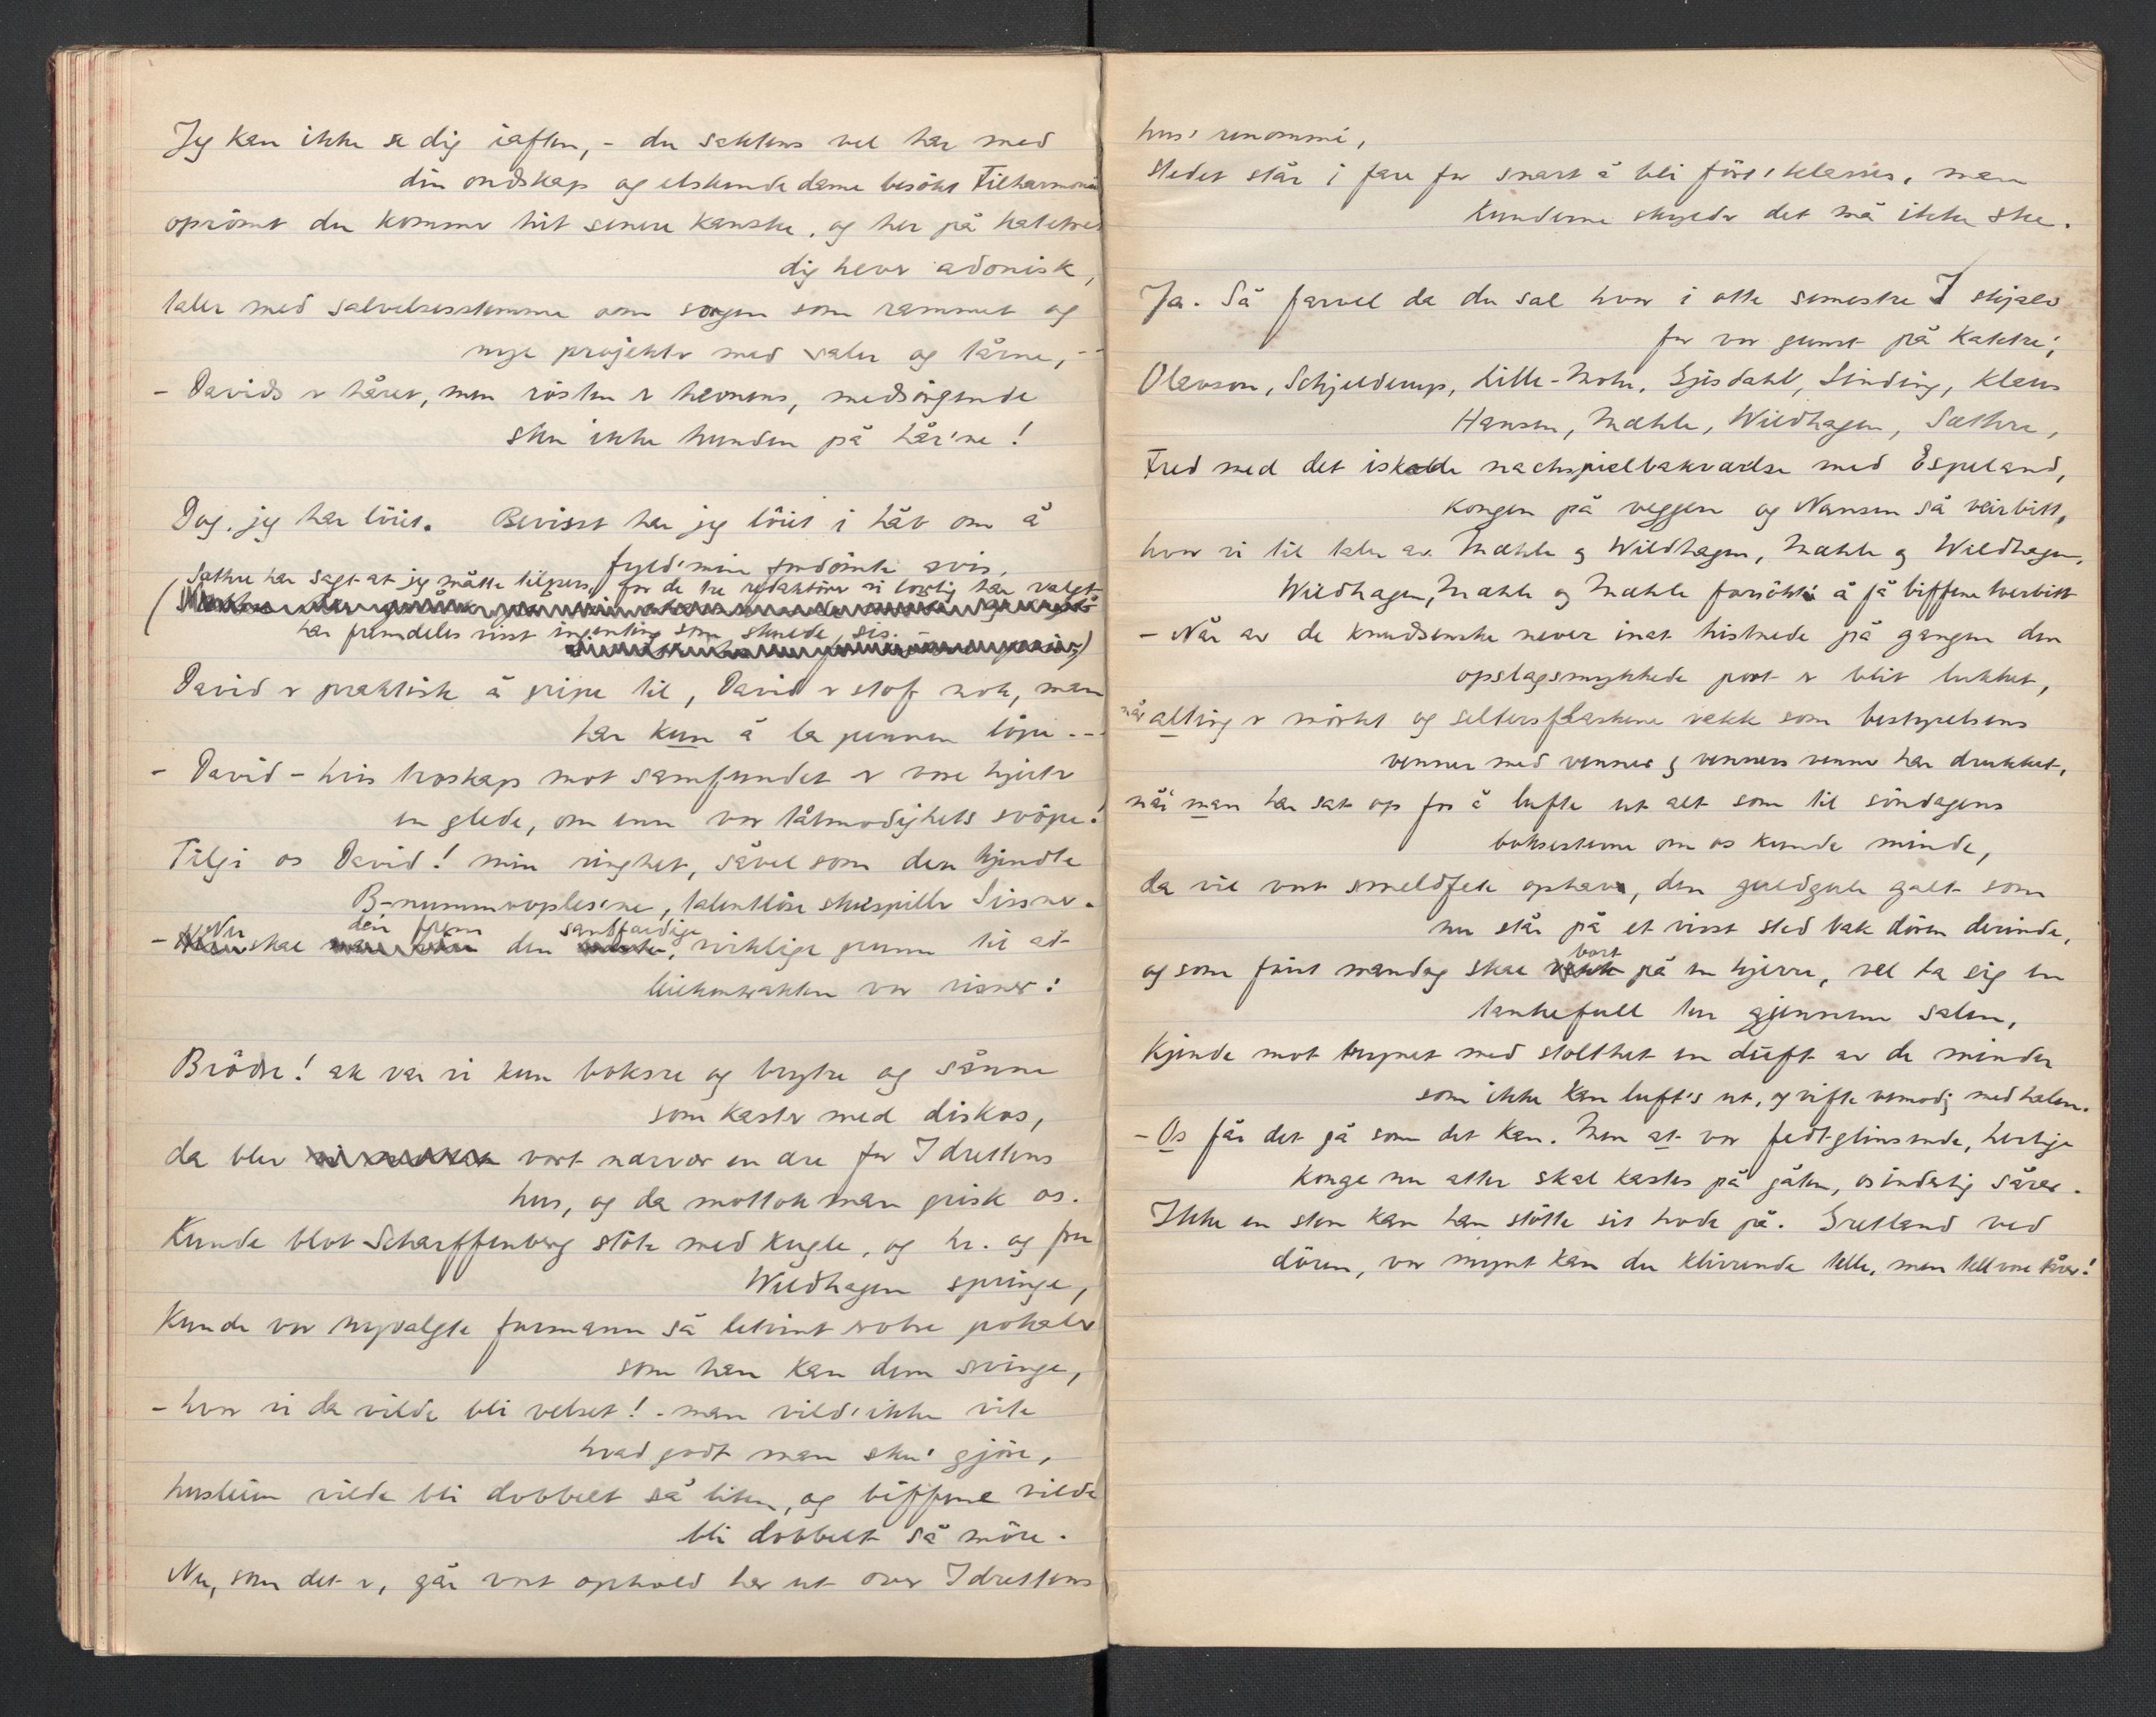 Jeg kan ikke se dig iaften, - du saktens vel har med
din ondskap og elskende dame besökt Filharmonien
oprömt du kommer hit senere kanske, og her på katetret
dig hever adonisk,
taler med salvelsesstemme om sorgen som rammet og
nye projekter med saler og tårne, --
- Davids er håret, men rösten er hevnens, medsörgende
sku ikke hunden på hår'ne!
Dog, jeg har löiet. Bevisst har jeg löiet i håb om å
fyld' min fordömte avis.
(Sæthre har sagt at jeg måtte tilpers, for de tre redaktörer vi lovlig har valgt
har fremdeles visst ingenting som skrevde sis. -)
David er praktisk å gripe til, David er stof nok, man
har kun å la pennen löpe. --
- David - hvis troskap mot samfundet er vore hjerter
en glede, om enn vor tålmodighets svöpe!
Tilgi os David! min ringhet, såvel som den kjendte
B-nummeroplesrne, talentlöse skuespiller Sissner.
- Nu skal den frem den sandfærdige, virkelige grunn til at
leiekontrakten vor visner:
Brödre! ak var vi kun boksre og brytre og sånne
som kaster med diskos,
da blev vort nærvær en ære for Idrettens
hus, og da mottok man grisk os.
Kunde blot Scharffenberg stöte med kugle, og hr. og fru
Wildhagen springe,
Kunde vor nyvalgte formann så letvint erobre pokaler
som han kan dem svinge,
- hvor vi da vilde bli velset! - man vild' ikke vite
hvad godt man sku' gjöre,
husleien vilde bli dobbelt så liten, og biffene vilde
bli dobbelt så möre.
Nu, som det er, går vort ophold her ut over Idrettens
hus' renommé,
stedet står i fare for snart å bli förs'klasses, men
kunderne skyldr det må ikke ske.
Ja. Så farvel da du sal hvor i otte semestre I skjalv
for vor gunst på Kakkre',
Olavson, Schjelderup, Lille-Mohr, Gjesdahl, Sinding, Klaus
Hansen, Mæhle, Wildhagen, Sæthre,
Fred med det iskolde nachspielbakværelse med Espeland,
kongen på veggen og Nansen så veirbitt,
hvor vi til taler av Mæhle og Wildhagen, Mæhle og Wildhagen,
Wildhagen, Mæhle og Mæhle forsökte å få biffene tverbitt
- Når av de knudsenske never inat tristnede på gangen den
opslagsmykkede port er blit lukket,
når alting er mörkt og seltersflaskene vekk som bestyrelsens
venner med venner og venners venner har drukket,
når man har sat op for å lufte ut alt som til söndagens
bokserstevne om os kunde minde,
da vil vort smeldfete ophav, den guldgule galt som
nu står på et visst sted bak dören derinde,
og som först mandag skal bort på en kjerre, vel ta sig en
tankefull tur gjennem salen,
Kjende mot trynet med stolthet en duft av de minder
som ikke kan luft's ut, og vifte vemodig med halen.
- Os får det gå som det kan. Men at vor fedtglinsende, herlige
konge nu atter skal kastes på gåten, os inderlig sårer.
Ikke en sten kan han stötte sit hode på. Gretland ved
dören, vor mynt kan du klirrende telle, men tell vore tårer!